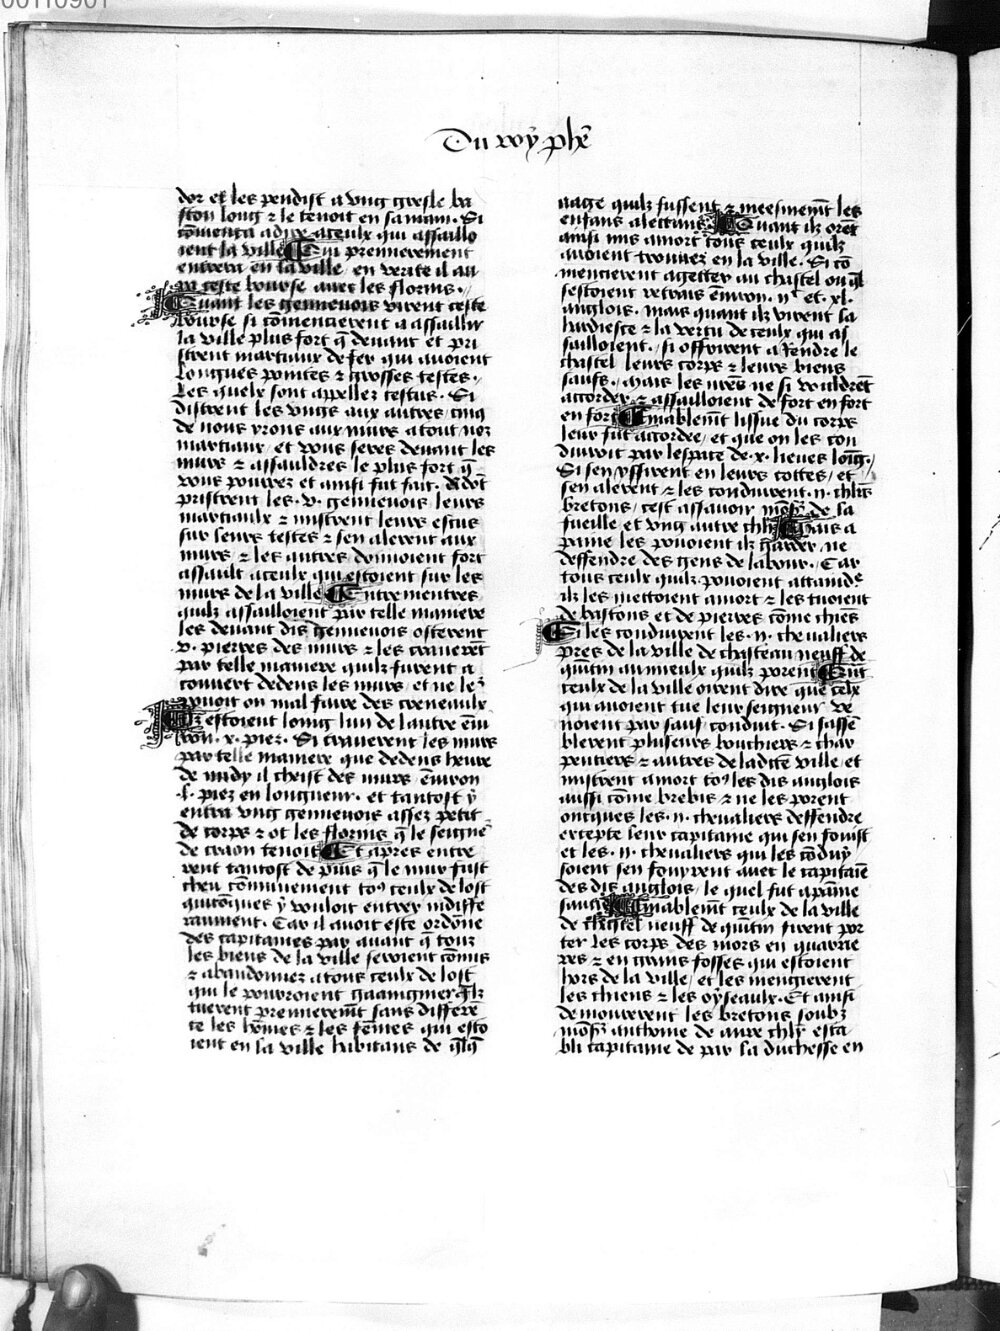 00110901
Du roy phe
dor et les pendist a vng gresle ba
ston long ⁊ le tenoit en sa main. Si
cōmenca a dire a ceulx qui assaillo
ient la ville Cui premierement
entrera en la ville / en verite il au
ra ceste bourse auec les florins.
Quant les gennenois virent ceste
bourse si cōmencierent a assaillir
la ville plus fort q̄ deuant et pri
strent marteaux de fer qui auoient
longues pointes ⁊ grosses testes.
Les quelx sont appellez testus. Si
distrent les vngs aux autres cinq
de nous yrons aux murs a tout noz
marteaux / et vous seres deuant les
murs ⁊ assauldres le plus fort q̄
vous pourrez et ainsi fut fait. Adōt
pristrent les .v. gennenois leurs
marteaulx ⁊ mistrent leurs escus
sur leurs testes ⁊ sen alerent aux
murs ⁊ les autres donnoient fort
assault a ceulx qui estoient sur les
murs de la ville Entrementres
quilz assailloient par telle maniere
les deuant dis gennenois osterent
.v. pierres des murs ⁊ les cauerēt
par telle maniere quilz furent a
couuert dedens les murs / et ne le²
pouoit on mal faire des creneaulx
Ilz estoient loing lun de lautre enui
ron .x. piez. Si cauerent les murs
par telle maniere que dedens heure
de midy il cheist des murs enuiron
.l. piez en longueur. et tantost y
entra vng gennenois assez petit
de corps ⁊ ot les florins q̄ le seigne²
de craon tenoit Et apres entre
rent tantost de puis q̄ le mur fust
cheu communement to⁹ ceulx de lost
quicōques y vouloit entrer indiffe
ramment. Car il auoit este ordōne
des capitaines par auant q̄ touz
les biens de la ville seroient cōmis
⁊ abandonnez a tous ceulx de lost
qui le pourroient gaaingnier Ilz
tuerent premieremēt sans differē
ce les hōmes ⁊ les fēmes qui esto
ient en la ville habitans de q̄lq̄
aage quilz fussent ⁊ meesmemēt les
enfans alectans Quant ilz orēt
ainsi mis a mort tous ceulx quilz
auoient trouuez en la ville. Si cō
mencierent a getter au chastel ou q̄l
sestoient retrais enuiron .iiᶜ et .xl.
anglois. mais quant ilz virent la
hardiesce ⁊ la vertu de ceulx qui as
sailloient. si offrirent a rendre le
chastel leurs corps ⁊ leurs biens
saufs. Mais les nrēs ne si vouldrēt
accorder ⁊ assailloient de fort en fort
en fort Finablemēt lissue du corps
leur fut accordee / et que on les con
duiroit par lespace de .x. lieues loing.
Si sen yssirent en leurs cottes / et
sen alerent ⁊ les conduirent .ii. chlrs
bretons / cest assauoir mōsʳ de la
fueille et vng autre chlr Mais a
paine les pouoient ilz garder ne
deffendre des gens de labour. Car
tous ceulx quilz pouoient attaindʳᵉ
ilz les mettoient a mort ⁊ les tuoient
de bastons et de pierres cōme chiēs
Si les conduirent les .ii. cheualiers
pres de la ville de chasteau neuf de
quintin au mieulx quilz porent Cūt
ceulx de la ville oirent dire que ceulx
qui auoient tue leur seigneur ve
noient par sauf conduit. Si sassē
blerent pluseurs bouchiers ⁊ char
pentiers ⁊ autres de ladcte ville / et
mistrent a mort to⁹ les dis anglois
aussi cōme brebis ⁊ ne les porent
oncques les .ii. cheualiers deffendre
excepte leur capitaine qui sen fouist
et les .ii. cheualiers qui les cōduy
soient sen fouyrent auec le capitaīe
des dis anglois / le quel fut a paine
sauue Finablemēt ceulx de la ville
de chastel neuf de quintin firent por
ter les corps des mors en quarrie
res ⁊ en grans fosses qui estoient
hors de la ville / et les mengierent
les chiens ⁊ les oyseaulx. Et ainsi
demourerent les bretons soubz
mōsʳ anthoine de aure chlr esta
bli capitaine de par la duchesse en